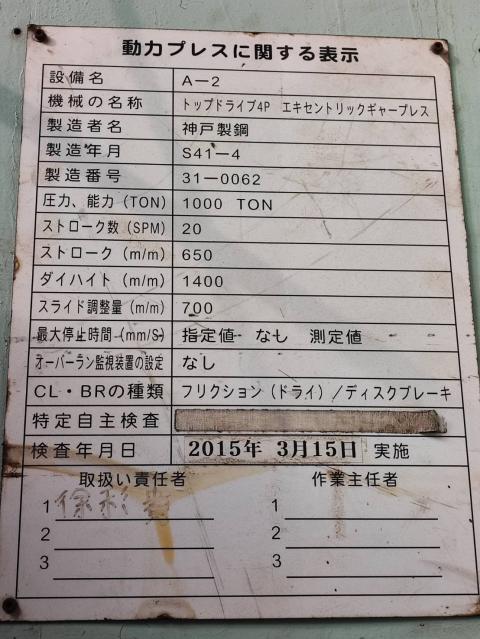 動力プレスに関する表示
設備名 A-2
機械の名称 トップドライブ4P エキセントリックギャープレス
製造者名 神戸製鋼
製造年月 S41-4
製造番号 31-0062
圧力、能力(TON) 1000 TON
ストローク数(SPM) 20
ストローク(m/m) 650
ダイハイト(m/m) 1400
スライド調整量(m/m) 700
最大停止時間(mm/S) 指定値 なし 測定値
オーバーラン監視装置の設定 なし
CL・BRの種類 フリクション(ドライ)/ディスクブレーキ
特定自主検査
検査年月日 2015年 3月15日 実施
取扱い責任者 作業主任者
1 1
2 2
3 3